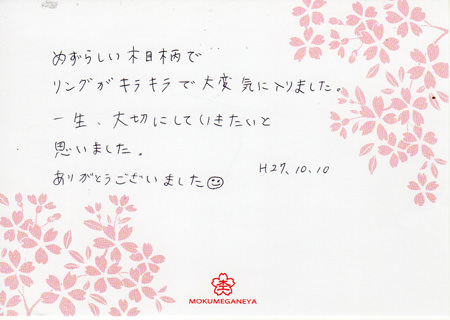 めずらしい木目柄で
リングがキラキラで大変気に入りました。
一生、大切にしていきたいと
思いました。
ありがとうございました
H27.10.10
MOKUMEGANEYA